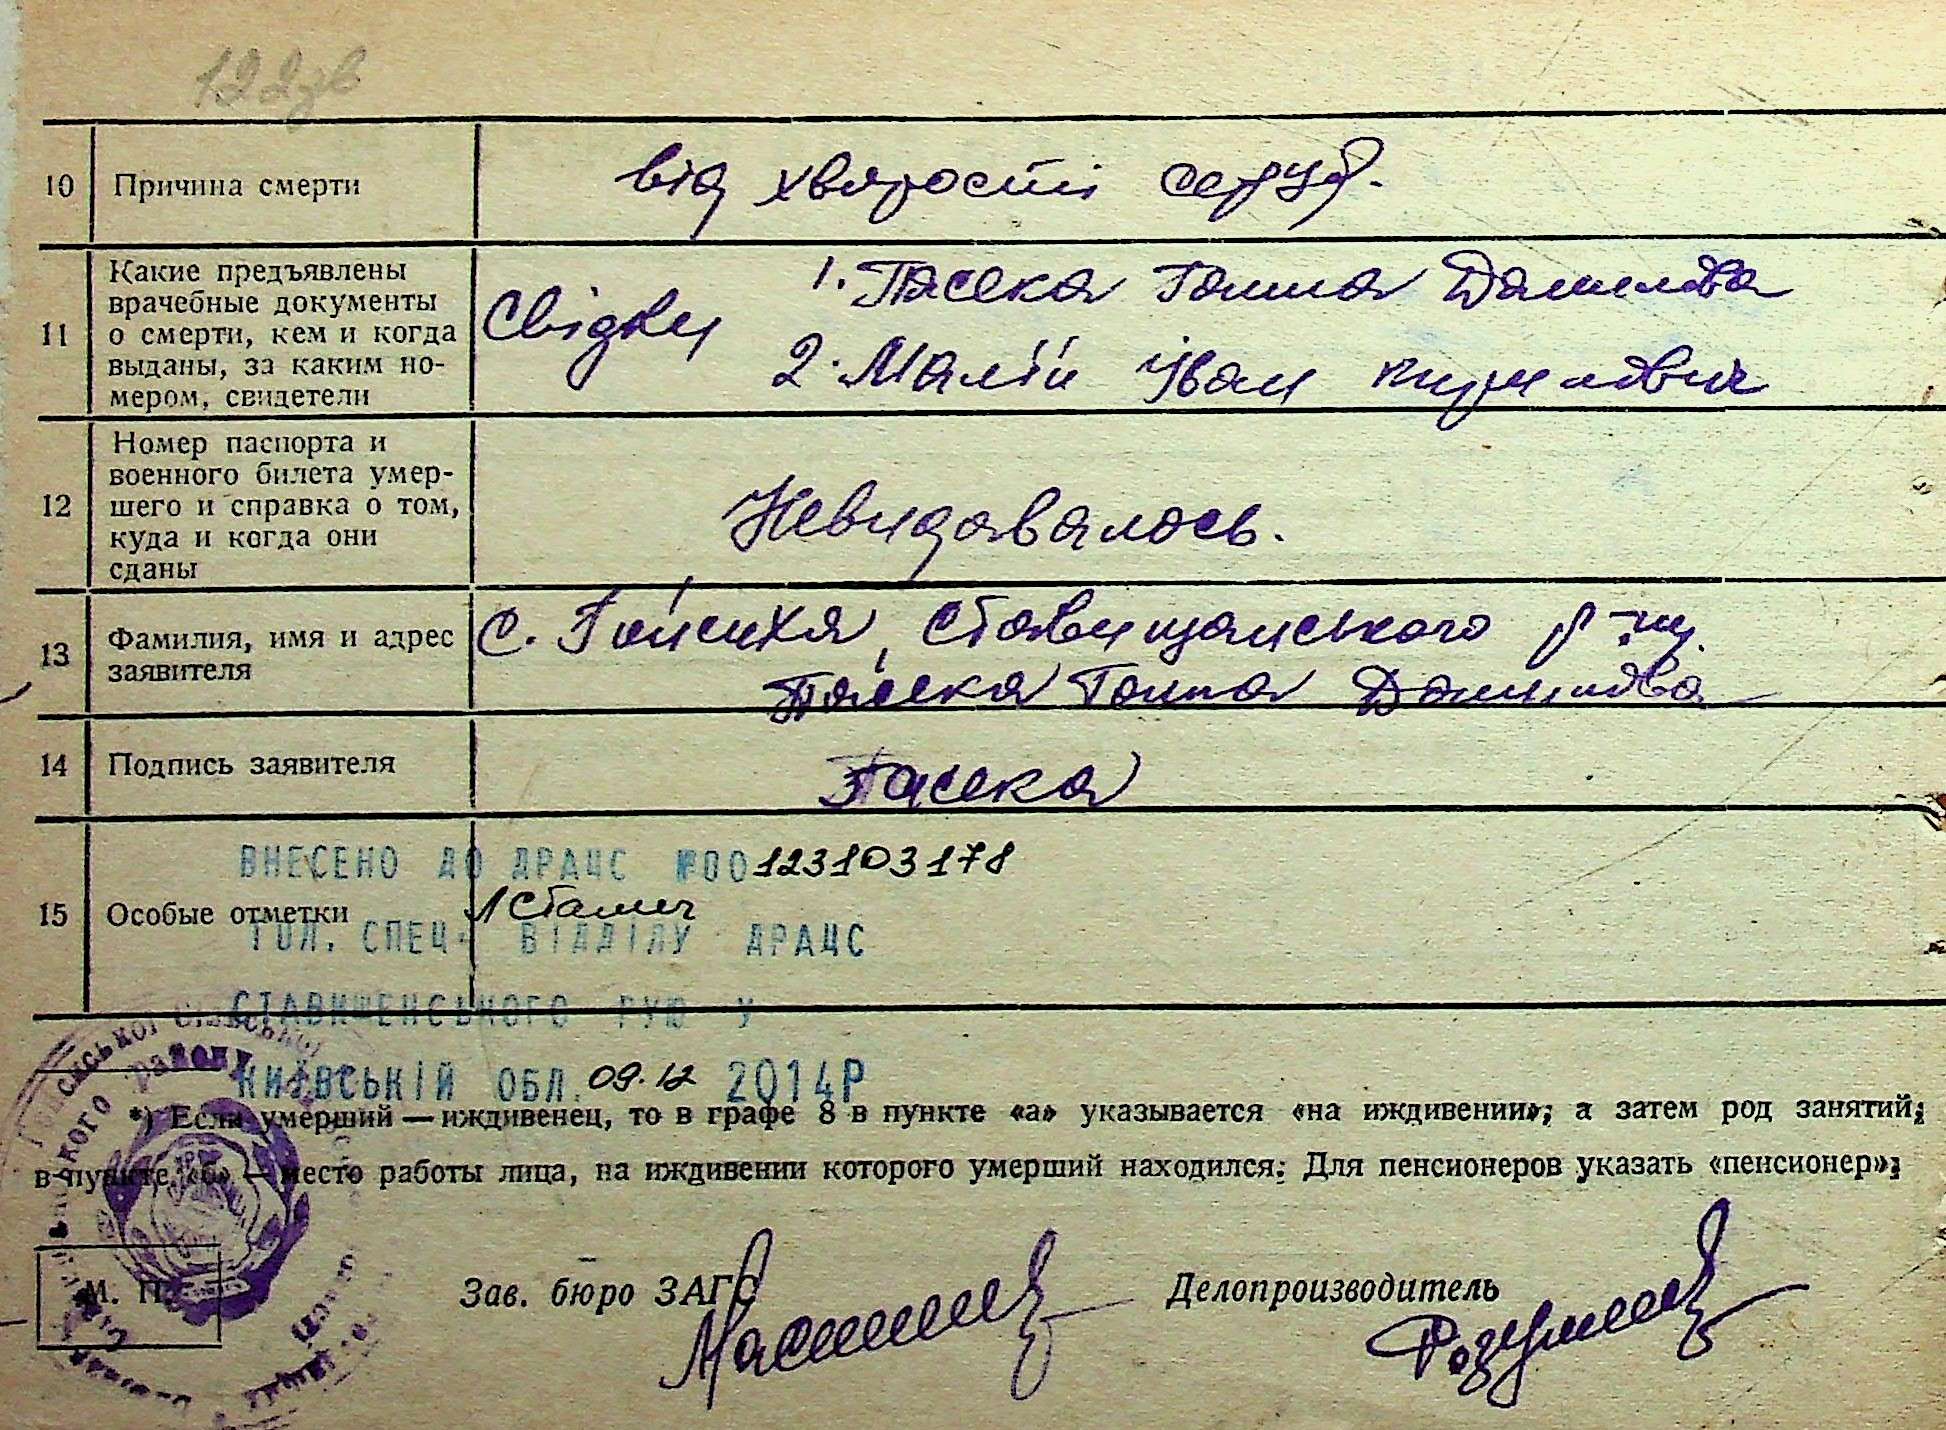 122зв
10 Причина смерти
від хворости серця.
11 Какие предъявлены
врачебные документы
о смерти, кем и когда
выданы, за каким но-
мером, свидетели
Свідки 1. Пасека Ганна Данилова
2. Малій Іван Кирилович
12 Номер паспорта и
военного билета умер-
шего и справка о том,
куда и когда они
сданы
Невидавалось.
13 Фамилия, имя и адрес
заявителя
с. Гейсиха, Ставищанського р-ну.
Пасека Ганна Данилова
14 Подпись заявителя
Пасека
ВНЕСЕНО ДО ДРАЦС №00123103178
15 Особые отметки
ГОЛ. СПЕЦ. ВІДДІЛУ ДРАЦС
СТАВИЩЕНСЬКОГО РУЮ У
КИЇВСЬКІЙ ОБЛ. 09.12 2014Р
*) Если умерший — иждивенец, то в графе 8 в пункте «а» указывается «на иждивении»; а затем род занятий;
в пункте «б» — место работы лица, на иждивении которого умерший находился; Для пенсионеров указать «пенсионер»;
М. П.
Зав. бюро ЗАГС
Делопроизводитель